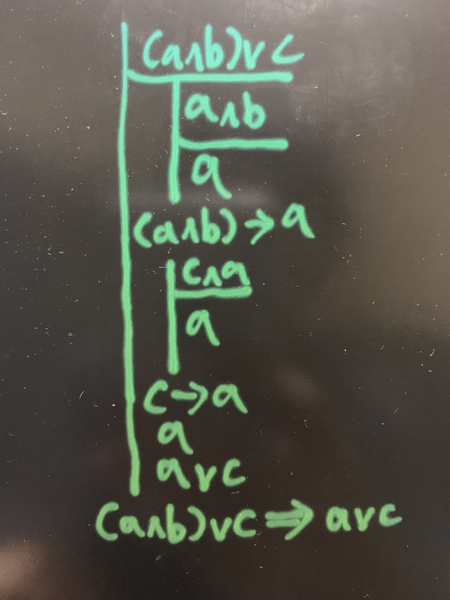 (a∧b)∨c
a∧b
a
(a∧b)→a
c∧a
a
c→a
a
a∨c
(a∧b)∨c⇒a∨c